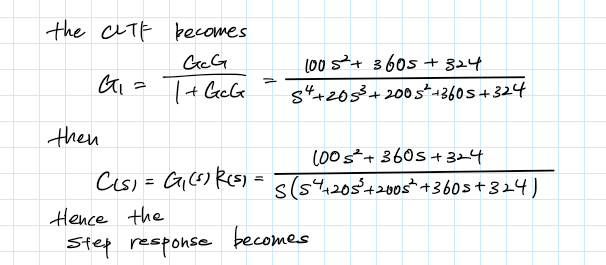 the CLTF becomes
G₁ = GcG / (1 + GcG) = (100s² + 360s + 324) / (s⁴+20s³+200s²+360s+324)
then
C(s) = G₁(s) R(s) = (100s² + 360s + 324) / (s(s⁴+20s³+200s²+360s+324))
Hence the
step response becomes